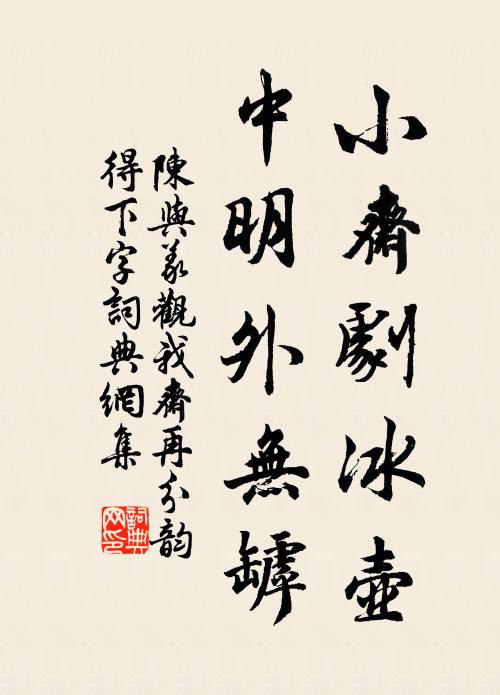 小齋劇冰壺
中明外無罅
陳與義觀我齋再分韵
得下字詞典網集
詞典
网印